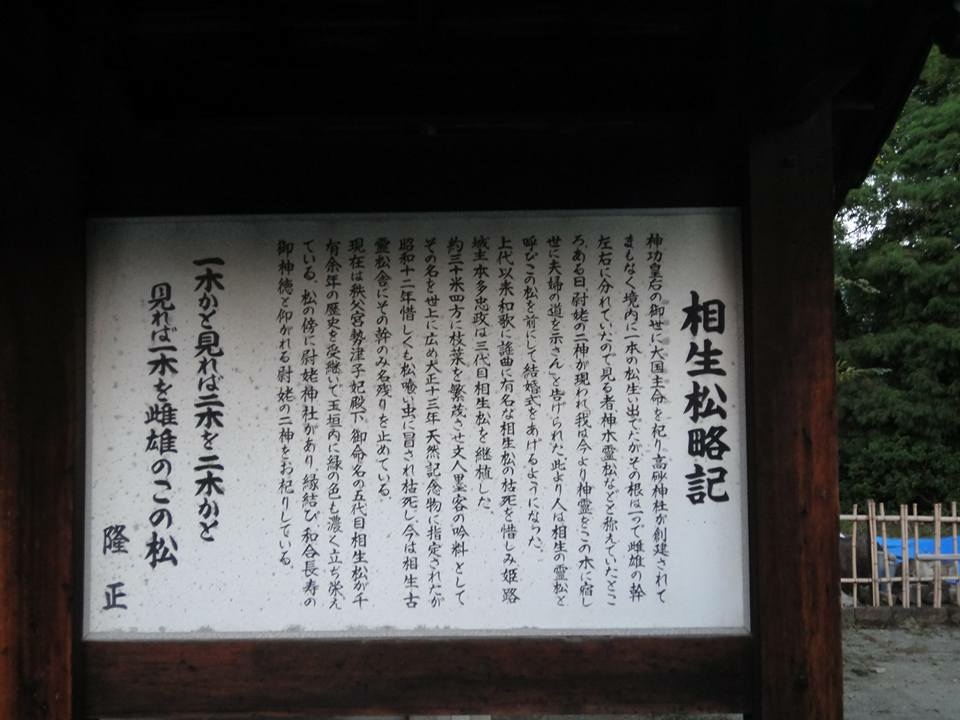 相生松略記
神功皇后の御世に大国主命を祀り高砂神社が創建されて
まもなく境内に一本の松生い出でたがその根は一つで雌雄の幹
左右に分れていたので見る者神木霊松などと称えていたとこ
ろ、ある日尉姥の二神が現われ「我は今より神霊をこの木に宿し
世に夫婦の道を示さん」と告げられた此より人は相生の霊松と
呼びこの松を前にして結婚式をあげるようになった。
上代以来和歌に謡曲に有名な相生松の枯死を惜しみ姫路
城主本多忠政は三代目相生松を継植した。
約三十米四方に枝葉を繁茂させ文人墨客の吟料として
その名を世上に広め大正十三年天然記念物に指定されたが
昭和十二年惜しくも松喰い虫に冒され枯死し今は相生古
霊松舎にその幹のみ名残りを止めている。
現在は秩父宮勢津子妃殿下、御命名の五代目相生松が千
有余年の歴史を受継いで玉垣内に緑の色も濃く立ち栄え
ている。松の傍に尉姥神社があり、縁結び、和合長寿の
御神徳と仰がれる尉姥の二神をお祀りしている。
一木かと見れば二木を二木かと
見れば一木を雌雄のこの松
隆正